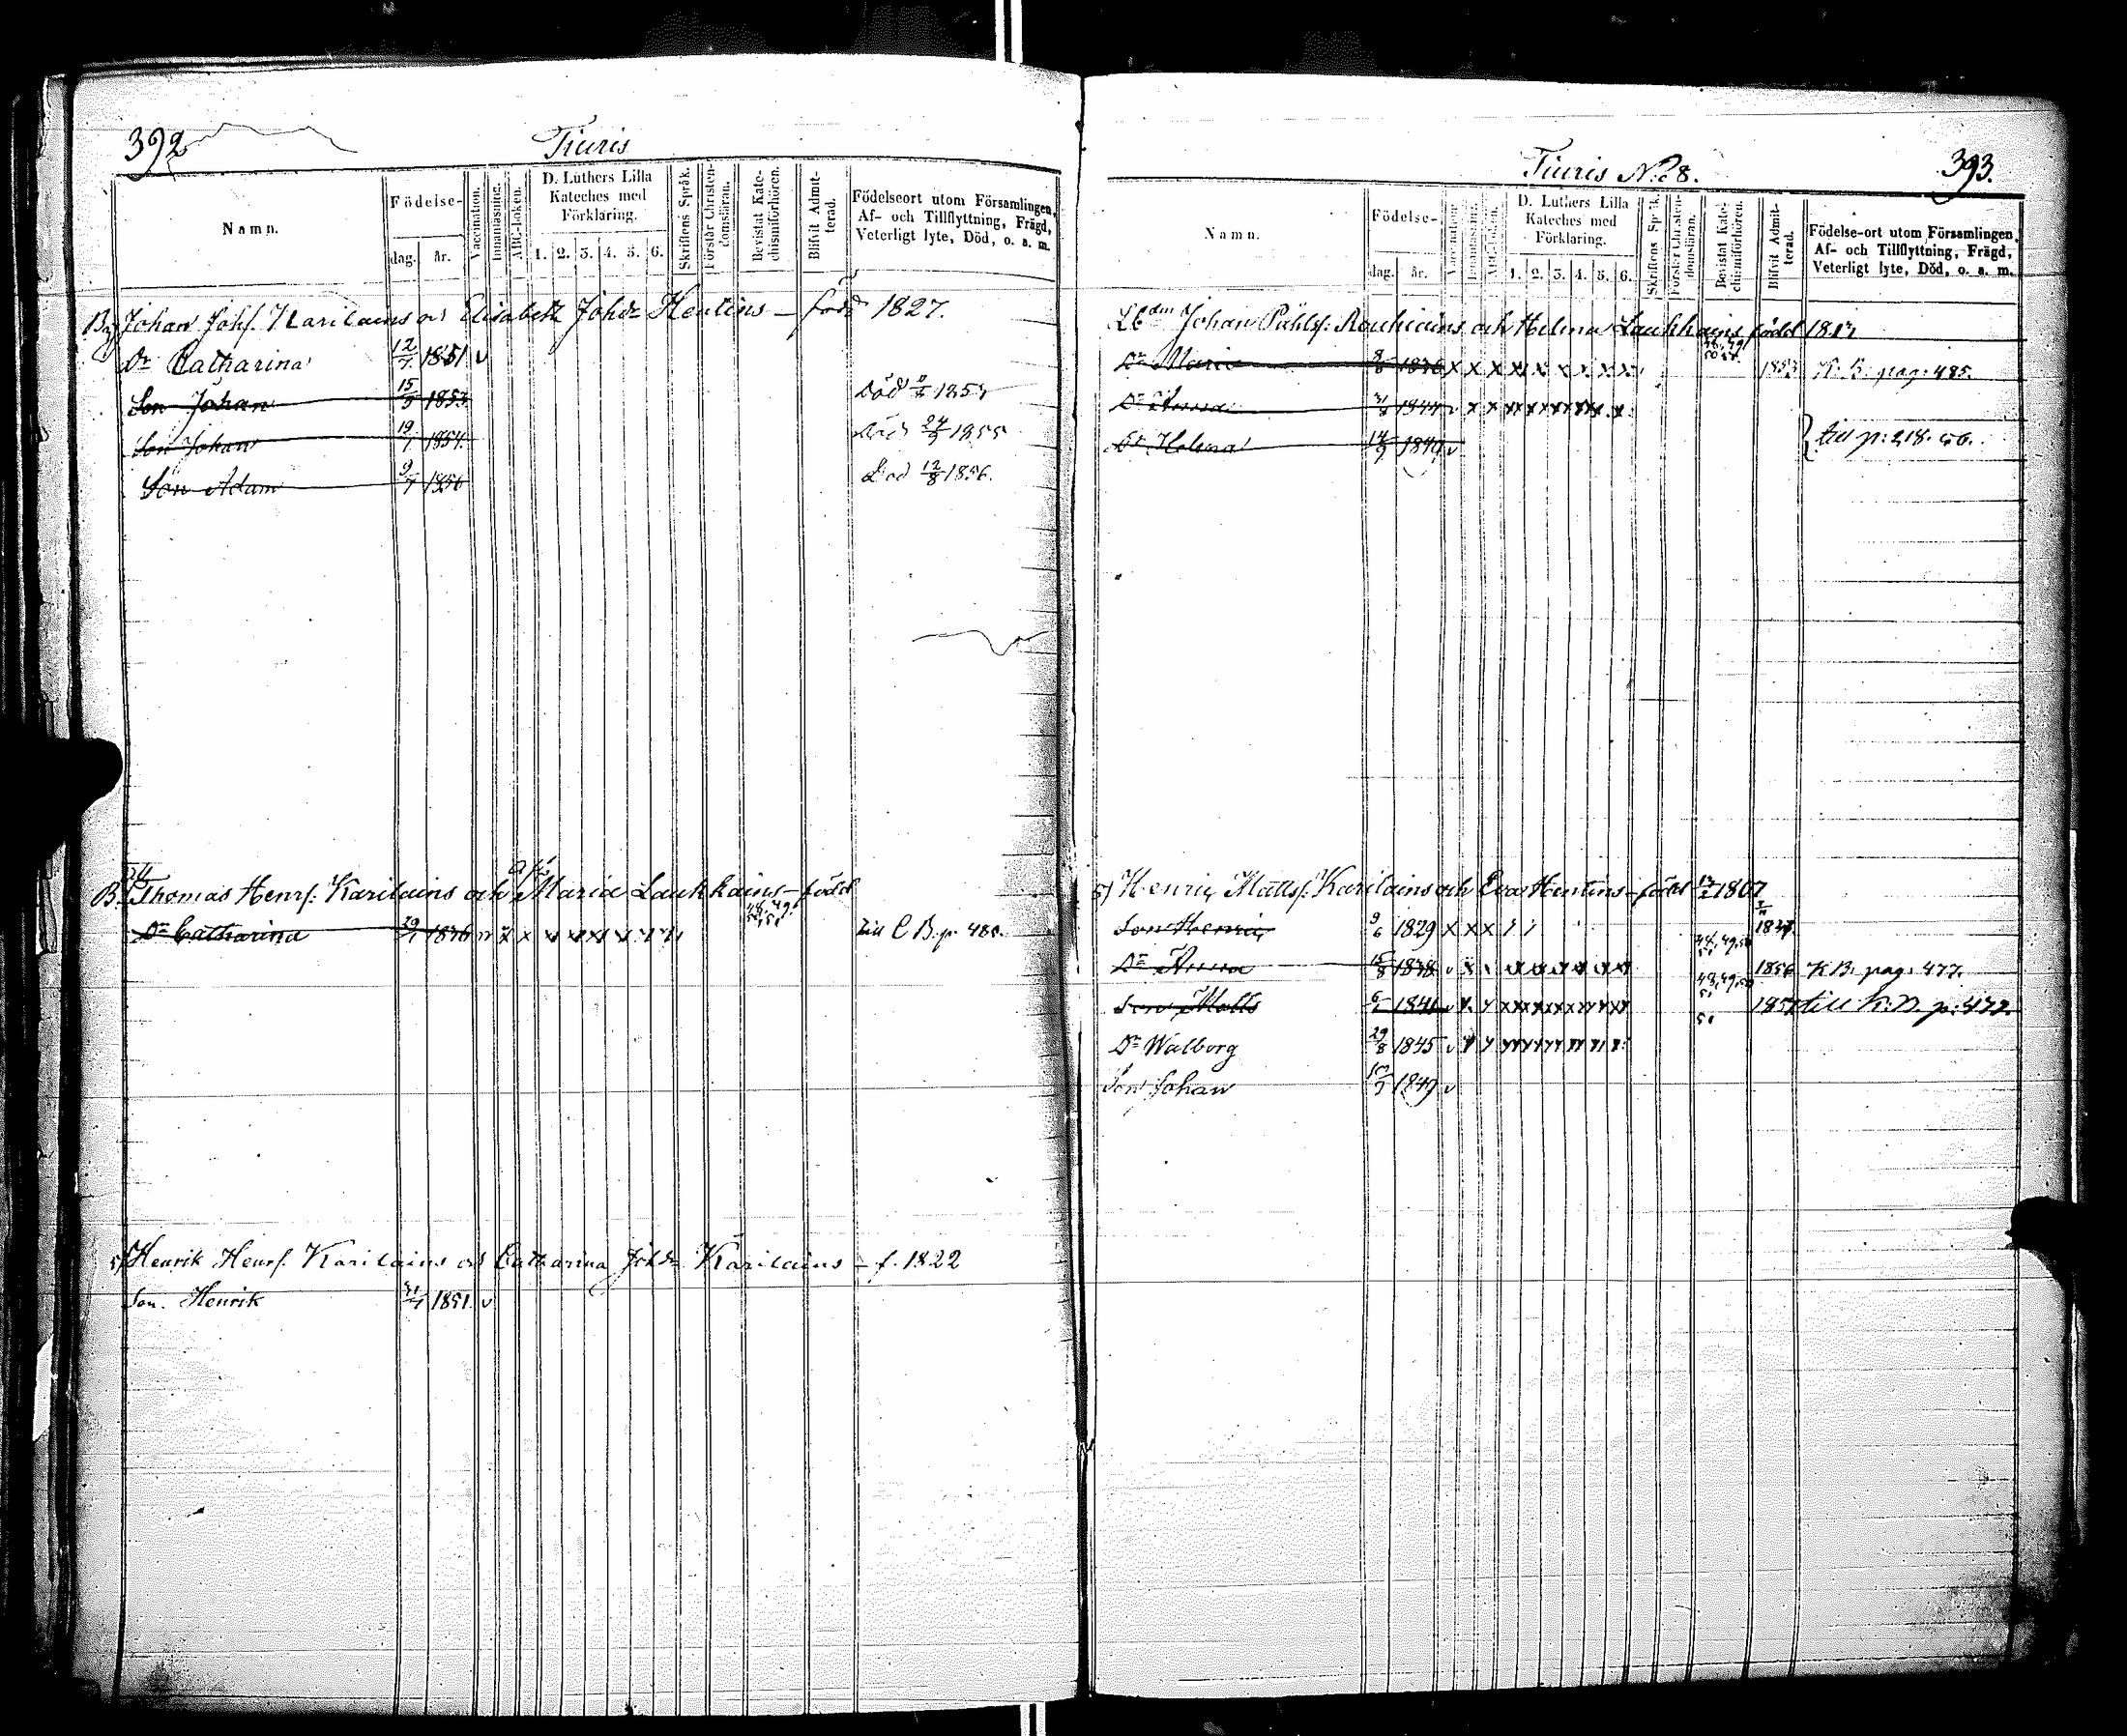 392
Tiuris
Namn.
Födelse-
dag. år.
Vaccination.
Innanläsning.
ABC-boken.
D. Luthers Lilla
Kateches med
Förklaring.
1. 2. 3. 4. 5. 6.
Skriftens Språk.
Förstår Christen-
domsläran.
Bevistat Kate-
chismiförhören.
Blifvit Admit-
terad.
Födelseort utom Församlingen,
Af- och Tillflyttning, Frägd,
Veterligt lyte, Död, o. a. m.
Johan Johs. Karilains och Elisabeth Johdr Hentins – född 1827.
Dr Catharina 12/7 1851 v
Son Johan 15/5 1853 Död 1853
Son Johan 19/1 1854 Död 24/9 1855
Son Adam 9/7 1856 Död 12/8 1856.
Thomas Henrs. Karilains och Maria Laukkains – född
48, 49,
50, 51
Dr Catharina 29/1 1836 till C B. p. 480.
5/ Henrik Henrs. Karilains och Catharina Johdr Karilains – f. 1822
Son Henrik 1851. v
Tiuris No 28.
393.
Namn.
Födelse-
dag. år.
Vaccination.
Innanläsning.
ABC-boken.
D. Luthers Lilla
Kateches med
Förklaring.
1. 2. 3. 4. 5. 6.
Skriftens Språk.
Förstår Christen-
domsläran.
Bevistat Kate-
chismiförhören.
Blifvit Admit-
terad.
Födelse-ort utom Församlingen,
Af- och Tillflyttning, Frägd,
Veterligt lyte, Död, o. a. m.
Johan Påhls. Rouhiains och Helena Laukkains född
48, 49,
Dr Maria 1836 x x x 1853 K. B. pag. 485.
Dr Anna 1844 v x x
Dr Helena 14/9 1849 v till p: 218.
5/ Henric Matts. Karilains och Eva Hentins – född 1807
Son Henric 9/6 1829 x x x
48, 49, 50
51
Dr Anna 15/8 1838 v 1856 K B. pag. 477.
48, 49, 50
51
Son Matts 1841 v till K: B. p: 477.
51
Dr Walborg 29/8 1845 v
Son Johan 1849 v